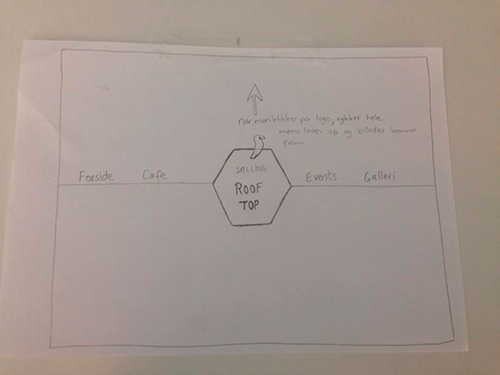 når man klikker på logo, rykker hele
menu linien op og billeder kommer
frem.
Forside Cafe SALLING ROOF TOP Events Galleri